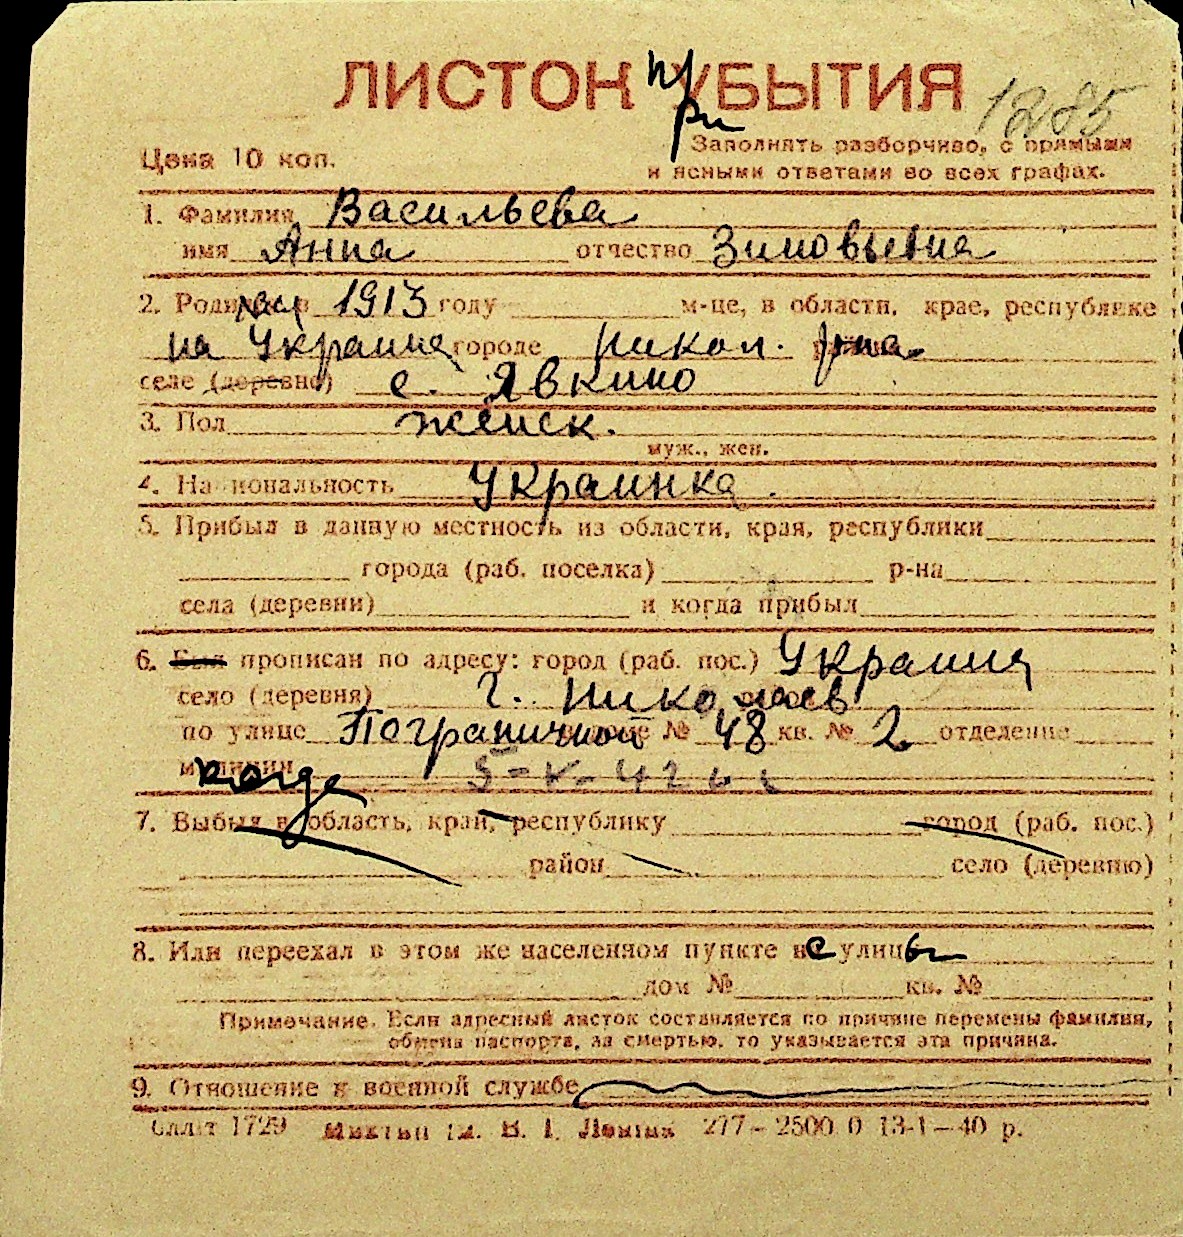 ЛИСТОК ПРИУБЫТИЯ
1285
Цена 10 коп.
Заполнять разборчиво, с прямыми
и ясными ответами во всех графах.
1. Фамилия Васильева
имя Анна отчество Зиновьевна
2. Родилась в 1913 году м-це, в области, крае, республике
на Украине городе Никол. р-на
селе (деревне) с. Явкино
3. Пол женск.
муж., жен.
4. Национальность Украинка.
5. Прибыл в данную местность из области, края, республики
города (раб. поселка) р-на
села (деревни) и когда прибыл
6. Был прописан по адресу: город (раб. пос.) Украина
село (деревня) г. Николаев
по улице Пограничной № 48 кв. № 2 отделение
милиции когда
7. Выбыл в область, край, республику город (раб. пос.)
район село (деревню)
8. Или переехал в этом же населенном пункте с улицы
дом № кв. №
Примечание. Если адресный листок составляется по причине перемены фамилии,
обмена паспорта, за смертью, то указывается эта причина.
9. Отношение к военной службе
1729 277–2500 0 13-1–40 р.